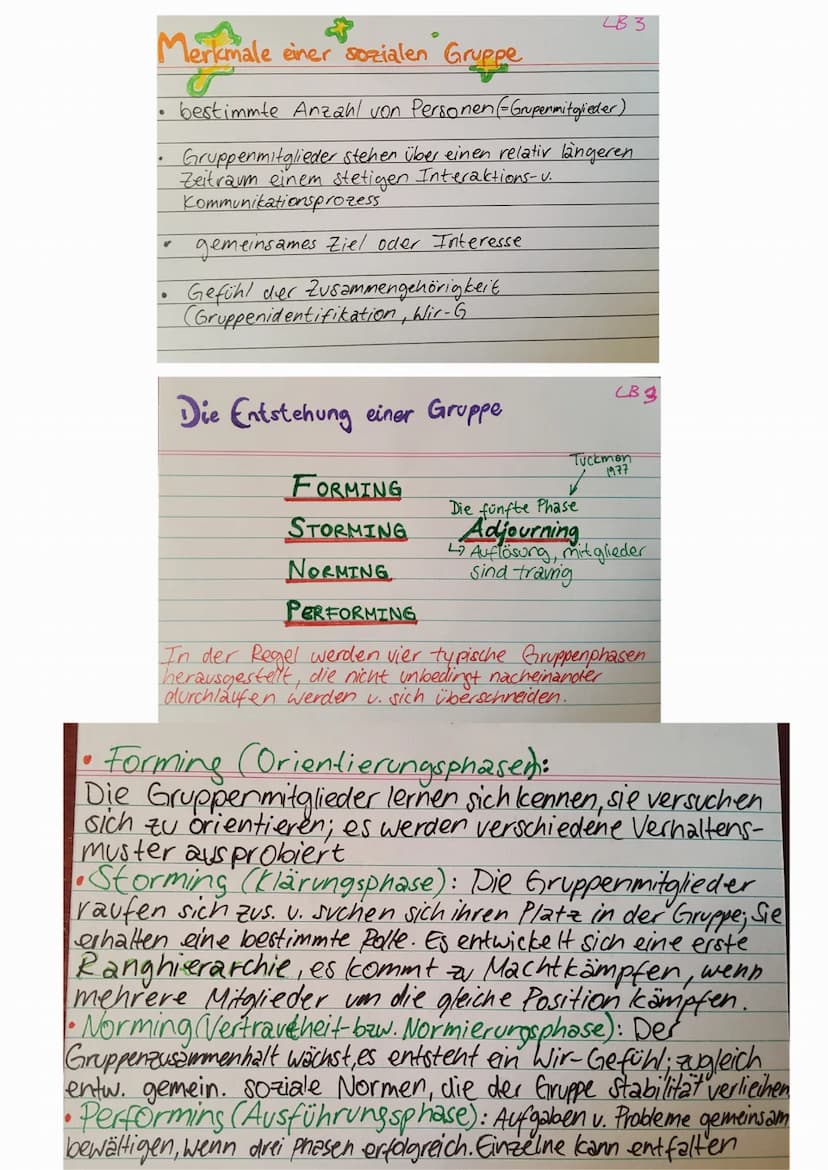 LB 3
Merkmale einer sozialen Gruppe
• bestimmte Anzahl von Personen (=Grupenmitglieder)
• Gruppenmitglieder stehen über einen relativ längeren
Zeitraum einem stetigen Interaktions- u.
Kommunikationsprozess
• gemeinsames Ziel oder Interesse
• Gefühl der Zusammengehörigkeit
(Gruppenidentifikation, Wir-G
LB 3
Die Entstehung einer Gruppe
Tuckman
1977
FORMING
Die fünfte Phase
STORMING
Adjourning
↳ Auflösung, mitglieder
sind traurig
NORMING
PERFORMING
In der Regel werden vier typische Gruppenphasen
herausgestellt, die nicht unbedingt nacheinander
durchlaufen werden u. sich überschneiden.
• Forming (Orientierungsphasen):
Die Gruppenmitglieder lernen sich kennen, sie versuchen
sich zu orientieren; es werden verschiedene Verhaltens-
muster ausprobiert
• Storming (Klärungsphase): Die Gruppenmitglieder
raufen sich zus. u. suchen sich ihren Platz in der Gruppe; Sie
erhalten eine bestimmte Rolle. Es entwickelt sich eine erste
Ranghierarchie, es kommt zu Machtkämpfen, wenn
mehrere Mitglieder um die gleiche Position kämpfen.
• Norming (Vertrautheit- bzw. Normierungsphase): Der
Gruppenzusammenhalt wächst, es entsteht ein Wir-Gefühl; zugleich
entw. gemein. soziale Normen, die der Gruppe Stabilität verleihen
• Performing (Ausführungsphase): Aufgaben u. Probleme gemeinsam
bewältigen, wenn drei Phasen erfolgreich. Einzelne kann entfalten